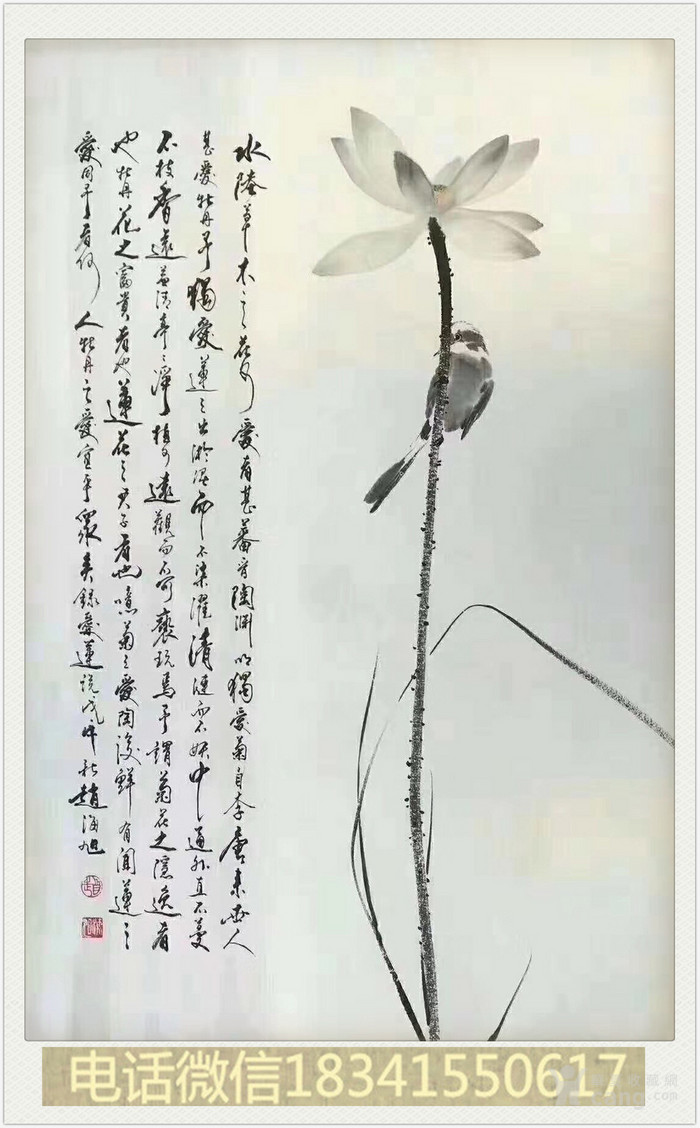 水陸草木之花可愛者甚蕃晉陶淵明獨愛菊自李唐來世人
甚愛牡丹予獨愛蓮之出淤泥而不染濯清漣而不妖中通外直不蔓
不枝香遠益清亭々淨植可遠觀而不可褻玩焉予謂菊花之隱逸者
也牡丹花之富貴者也蓮花之君子者也噫菊之愛陶後鮮有聞蓮之
愛同予者何人牡丹之愛宜乎眾矣錄愛蓮說戊午秋趙海旭
电话微信18341550617
.com